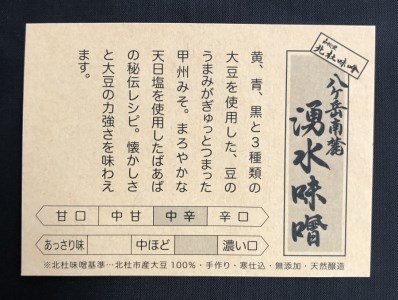 北杜味噌
八ヶ岳南麓
湧水味噌
黄、青、黒と3種類の
大豆を使用した、豆の
うまみがぎゅっとつまった
甲州みそ。まろやかな
天日塩を使用したばあば
の秘伝レシピ。懐かしさ
と大豆の力強さを味わえ
ます。
甘口 中甘 中辛 辛口
あっさり味 中ほど 濃い口
※北杜味噌基準…北杜市産大豆100%・手作り・寒仕込・無添加・天然醸造